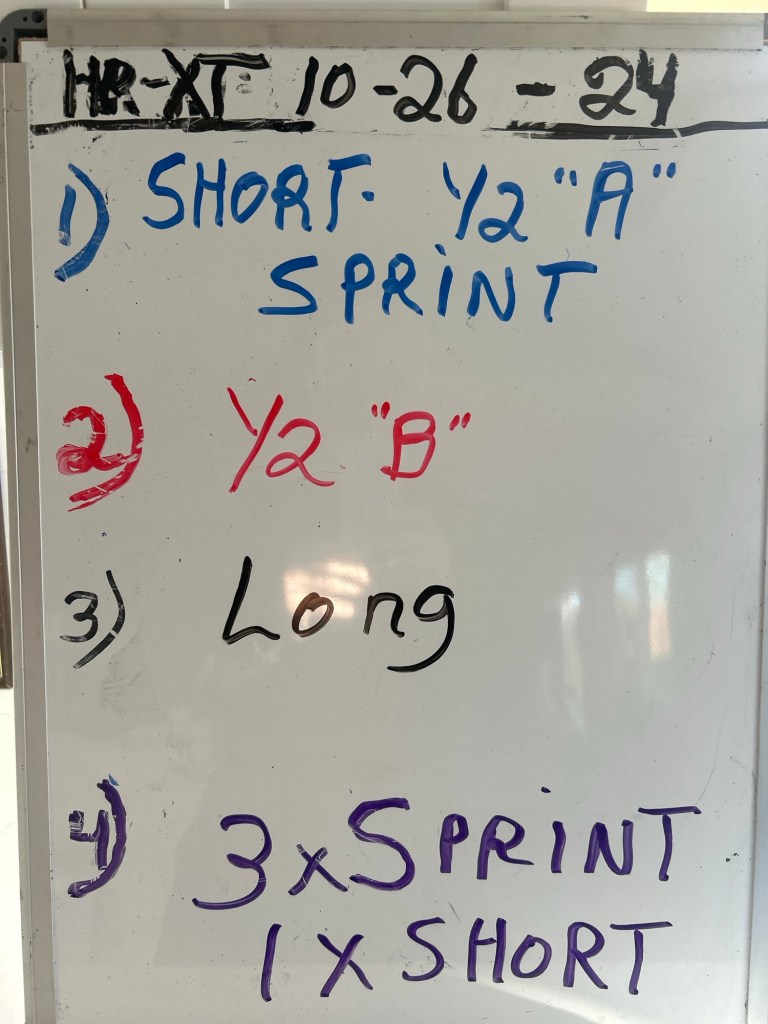 HR-XT: 10-26-24
1) SHORT. 1/2 "A"
SPRINT
2) 1/2 "B"
3) Long
4) 3xSPRINT
1 X SHORT